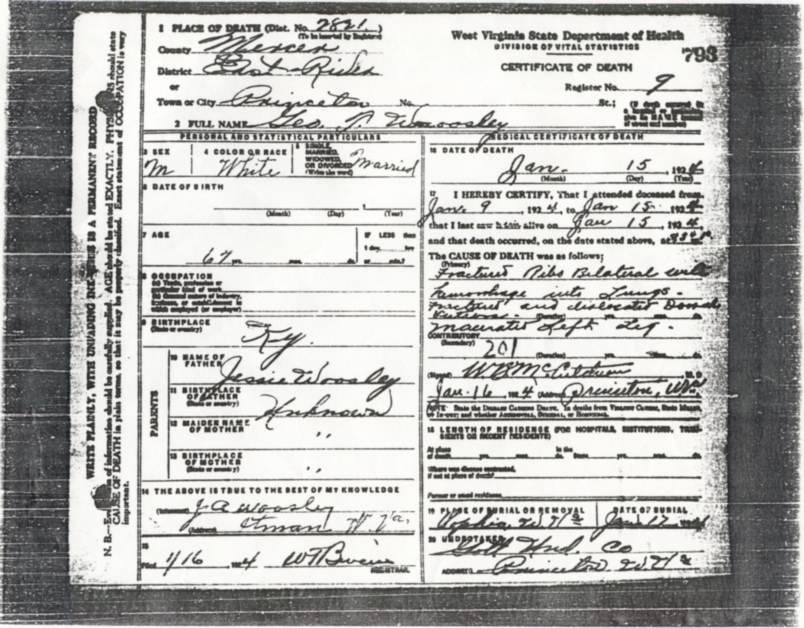 1 PLACE OF DEATH (Dist. No. 2821)
(To be inserted by Registrar)
County Mercer
District East River
or
Town or City Princeton No. St.;
2 FULL NAME Geo. T. Woosley
West Virginia State Department of Health
DIVISION OF VITAL STATISTICS
793
CERTIFICATE OF DEATH
Register No. 9
PERSONAL AND STATISTICAL PARTICULARS
3 SEX
M
4 COLOR OR RACE
White
5 SINGLE,
MARRIED,
WIDOWED,
OR DIVORCED
(Write the word)
Married
6 DATE OF BIRTH
(Month) (Day) (Year)
7 AGE
67 yrs. mos. ds.
IF LESS than
1 day, hrs
or min.?
8 OCCUPATION
(a) Trade, profession or
particular kind of work
(b) General nature of industry,
business, or establishment in
which employed (or employer)
9 BIRTHPLACE
(State or country)
Ky.
PARENTS
10 NAME OF
FATHER
Jessie Woosley
11 BIRTHPLACE
OF FATHER
(State or country)
Unknown
12 MAIDEN NAME
OF MOTHER
"
13 BIRTHPLACE
OF MOTHER
(State or country)
"
14 THE ABOVE IS TRUE TO THE BEST OF MY KNOWLEDGE
(Informant) J. A. Woosley
(Address) Itman W. Va.
15
Filed 1/16 1924
REGISTRAR
MEDICAL CERTIFICATE OF DEATH
16 DATE OF DEATH
Jan. 15, 1924
(Month) (Day) (Year)
17 I HEREBY CERTIFY, That I attended deceased from
Jan. 9 1924, to Jan 15 1924
that I last saw him alive on Jan 15 1924
and that death occurred, on the date stated above, at
The CAUSE OF DEATH was as follows:
(Primary)
Fractured Ribs Bilateral with
hemorrhage into Lungs.
Fractured and dislocated Dorsal
(Duration)
Left Leg.
CONTRIBUTORY
(Secondary)
201
(Duration) yrs. mos. ds.
(Signed) M. D.
Jan. 16, 1924 (Address) Princeton, W Va
NOTE State the DISEASE CAUSING DEATH. In deaths from VIOLENT CAUSES, State MEANS
OF INJURY; and whether ACCIDENTAL, SUICIDAL, or HOMICIDAL.
18 LENGTH OF RESIDENCE (FOR HOSPITALS, INSTITUTIONS, TRANSIENTS OR RECENT RESIDENTS)
At place
of death yrs. mos. ds. In the State yrs. mos. ds.
Where was disease contracted,
if not at place of death?
Former or usual residence
19 PLACE OF BURIAL OR REMOVAL
Sophia W Va
DATE OF BURIAL
Jan 17 1924
20 UNDERTAKER
Und. Co
ADDRESS Princeton W Va
WRITE PLAINLY, WITH UNFADING INK—THIS IS A PERMANENT RECORD
N. B.—Every item of information should be carefully supplied. AGE should be stated EXACTLY. PHYSICIANS should state
CAUSE OF DEATH in plain terms, so that it may be properly classified. Exact statement of OCCUPATION is very
important.